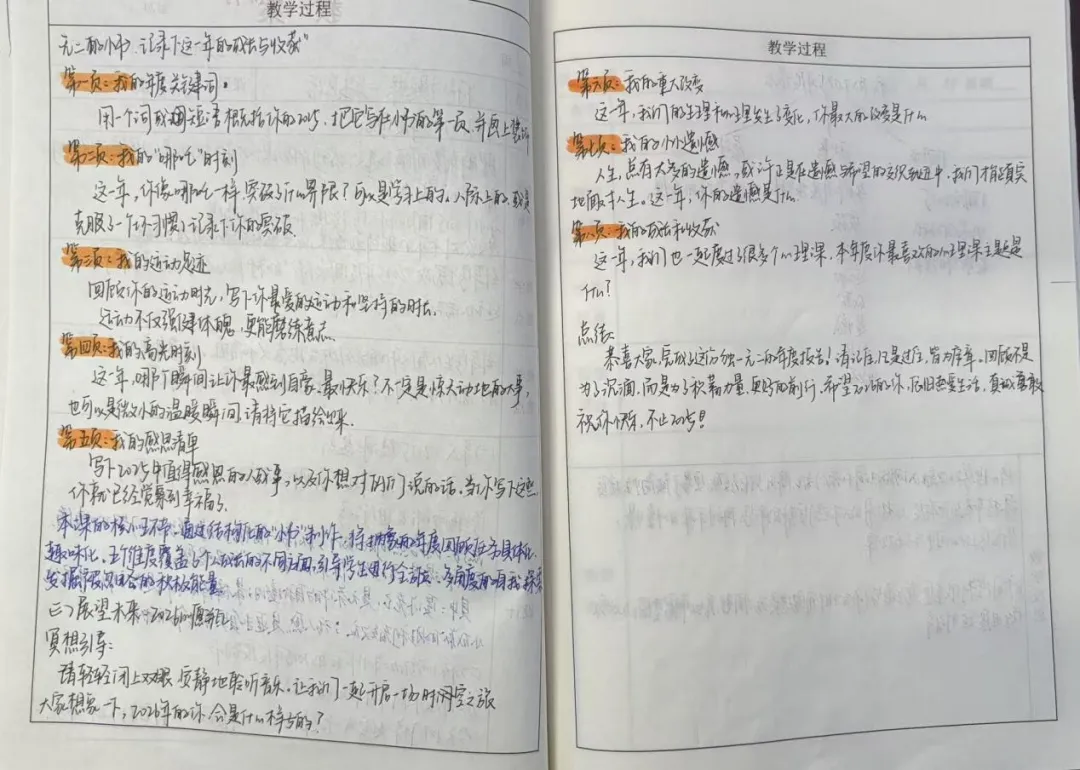 教学过程
元二的小书,记录下这一年的成长与收获"
第一页:我的年度关键词。
用一个词或短语概括你的2025,把它写在小书的第一页,并画上装饰
第二页:我的"哪吒"时刻
这一年,你像哪吒一样,突破了什么界限?可以是学习上的,人际上的,或是
克服了一个坏习惯,记录下你的突破
第三页:我的运动足迹
回顾你的运动时光,写下你最爱的运动和坚持的时长。
运动不仅强健体魄,更能磨练意志
第四页:我的高光时刻
这一年,哪个瞬间让你最感到自豪、最快乐?不一定是惊天动地的大事,
也可以是微小的温暖瞬间,请将它描绘出来.
第五页:我的感恩清单
写下2025年值得感恩的人或事,以及你想对他们说的话。当你写下这些,
你就已经觉察到幸福了
本课的核心环节,通过结构化的"小书"制作,将抽象的年度回顾任务具体化、
趣味化。五个维度覆盖了个人成长的不同方面,引导学生进行全方位、多角度的自我探索
发掘
(三)展望未来·2026心愿
冥想引导:
请轻轻闭上双眼,安静地聆听音乐,让我们一起开启一场时间之旅
大家想象一下,2026年的你,会是什么样子的?
教学过程
第六页:我的重大改变
这一年,我们的生理和心理发生了变化,你最大的改变是什么
第七页:我的小小遗憾
人生,总有太多的遗憾,或许正是在遗憾与希望的交织中,我们才能真实
地面对人生。这一年,你的遗憾是什么
第八页:我的成长和收获
这一年,我们也一起度过了很多个心理课,本年度你最喜欢的心理课主题是
什么?
总结:
恭喜大家完成了这份独一无二的年度报告!请记住,凡是过往,皆为序章,回顾不是
为了沉湎,而是为了积蓄力量,更好的前行,希望2026的你,依旧热爱生活,真诚勇敢
祝你快乐,不止2025!